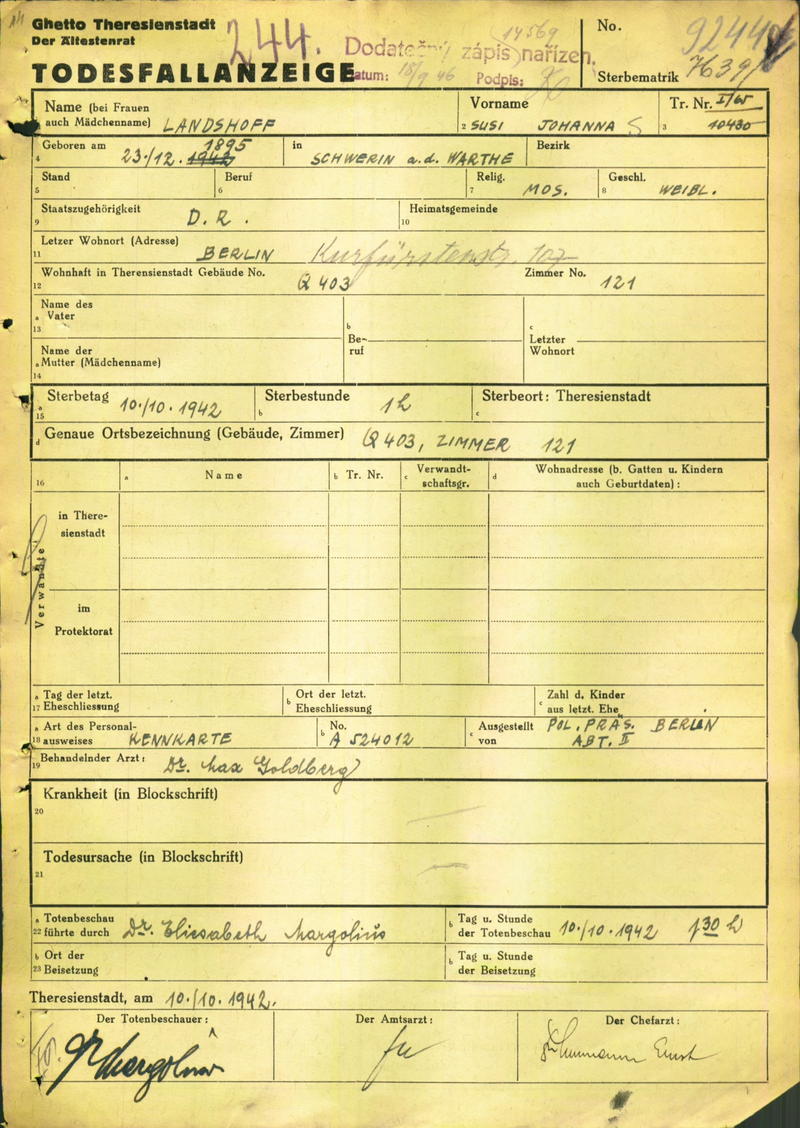 Ghetto Theresienstadt
Der Ältestenrat
TODESFALLANZEIGE
244.
Dodatečný zápis nařízen.
14569
Datum: 18/9 46 Podpis:
No. 92444
Sterbematrik
Name (bei Frauen
auch Mädchenname) LANDSHOFF
Vorname
2 SUSI JOHANNA S
Tr. Nr. I/65
3 10430
Geboren am 1895
4 23/12. 1942
in SCHWERIN a.d. WARTHE
Bezirk
Stand
5
Beruf
6
Relig.
7 MOS.
Geschl.
8 WEIBL.
Staatszugehörigkeit
9 D. R.
Heimatsgemeinde
10
Letzer Wohnort (Adresse)
11 BERLIN Kurfürstenstr. 107
Wohnhaft in Therensienstadt Gebäude No.
12 Q 403
Zimmer No. 121
Name des
a Vater
13
b
Be-
ruf
c
Letzter
Wohnort
Name der
a Mutter (Mädchenname)
14
a Sterbetag
15 10./10. 1942
Sterbestunde
b 1 h
Sterbeort: Theresienstadt
c
d Genaue Ortsbezeichnung (Gebäude, Zimmer) Q 403, ZIMMER 121
16
a Name
b Tr. Nr.
c Verwandt-
schaftsgr.
d Wohnadresse (b. Gatten u. Kindern
auch Geburtdaten):
Verwandte
in There-
sienstadt
im
Protektorat
a Tag der letzt.
17 Eheschliessung
b Ort der letzt.
Eheschliessung
c Zahl d. Kinder
aus letzt. Ehe
a Art des Personal-
18 ausweises KENNKARTE
b No.
A 524012
c Ausgestellt
von POL. PRÄS. BERLIN
ABT. II
Behandelnder Arzt:
19 Dr. Max Goldberg
Krankheit (in Blockschrift)
20
Todesursache (in Blockschrift)
21
a Totenbeschau
22 führte durch Dr. Eliesabeth Margolius
b Tag u. Stunde
der Totenbeschau 10/10. 1942 1 30 h
b Ort der
23 Beisetzung
b Tag u. Stunde
der Beisetzung
Theresienstadt, am 10./10. 1942.
Der Totenbeschauer:
Der Amtsarzt:
Der Chefarzt: